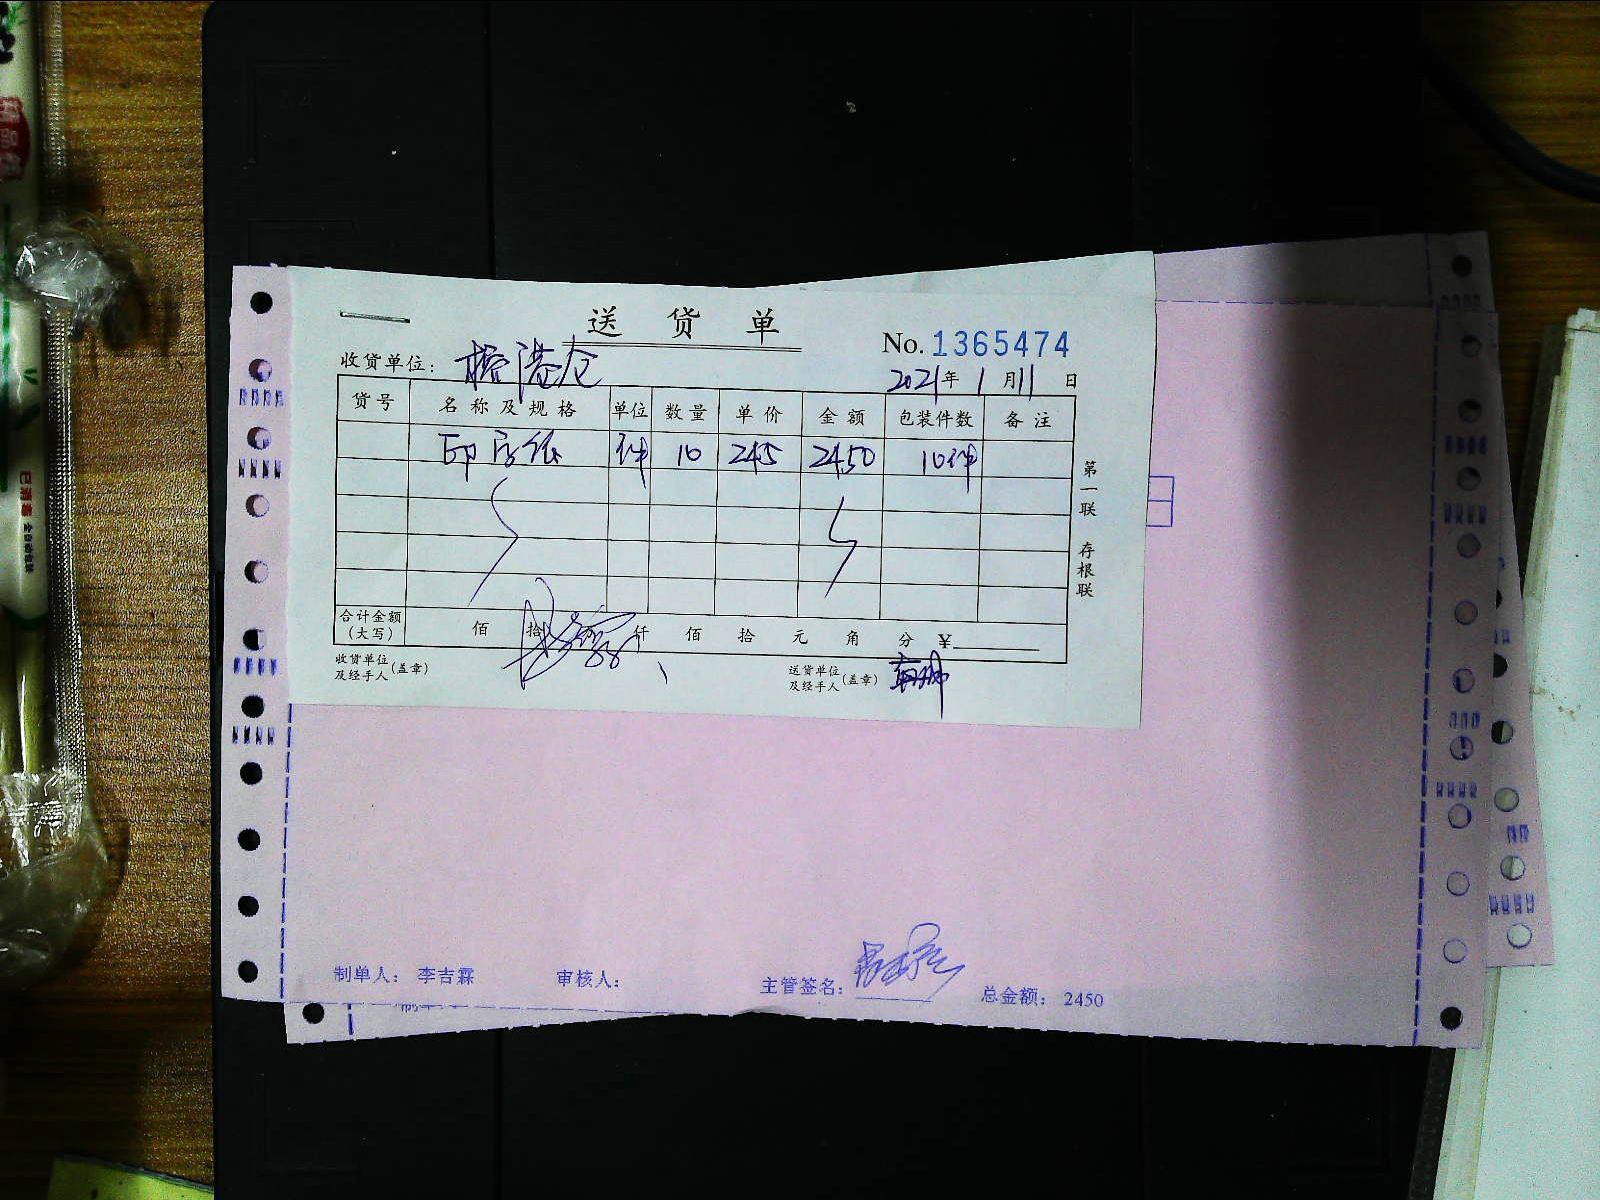 送货单
No. 1365474
收货单位: 榕港仓
2021年 1月11日
货号 名称及规格 单位 数量 单价 金额 包装件数 备注
印字纸 件 10 245 2450 10件
合计金额（大写） 佰 拾 万 仟 佰 拾 元 角 分 ¥
收货单位及经手人（盖章）
送货单位及经手人（盖章）
第一联 存根联
制单人: 李吉霖 审核人: 主管签名: 总金额: 2450
已消毒 全自动包装